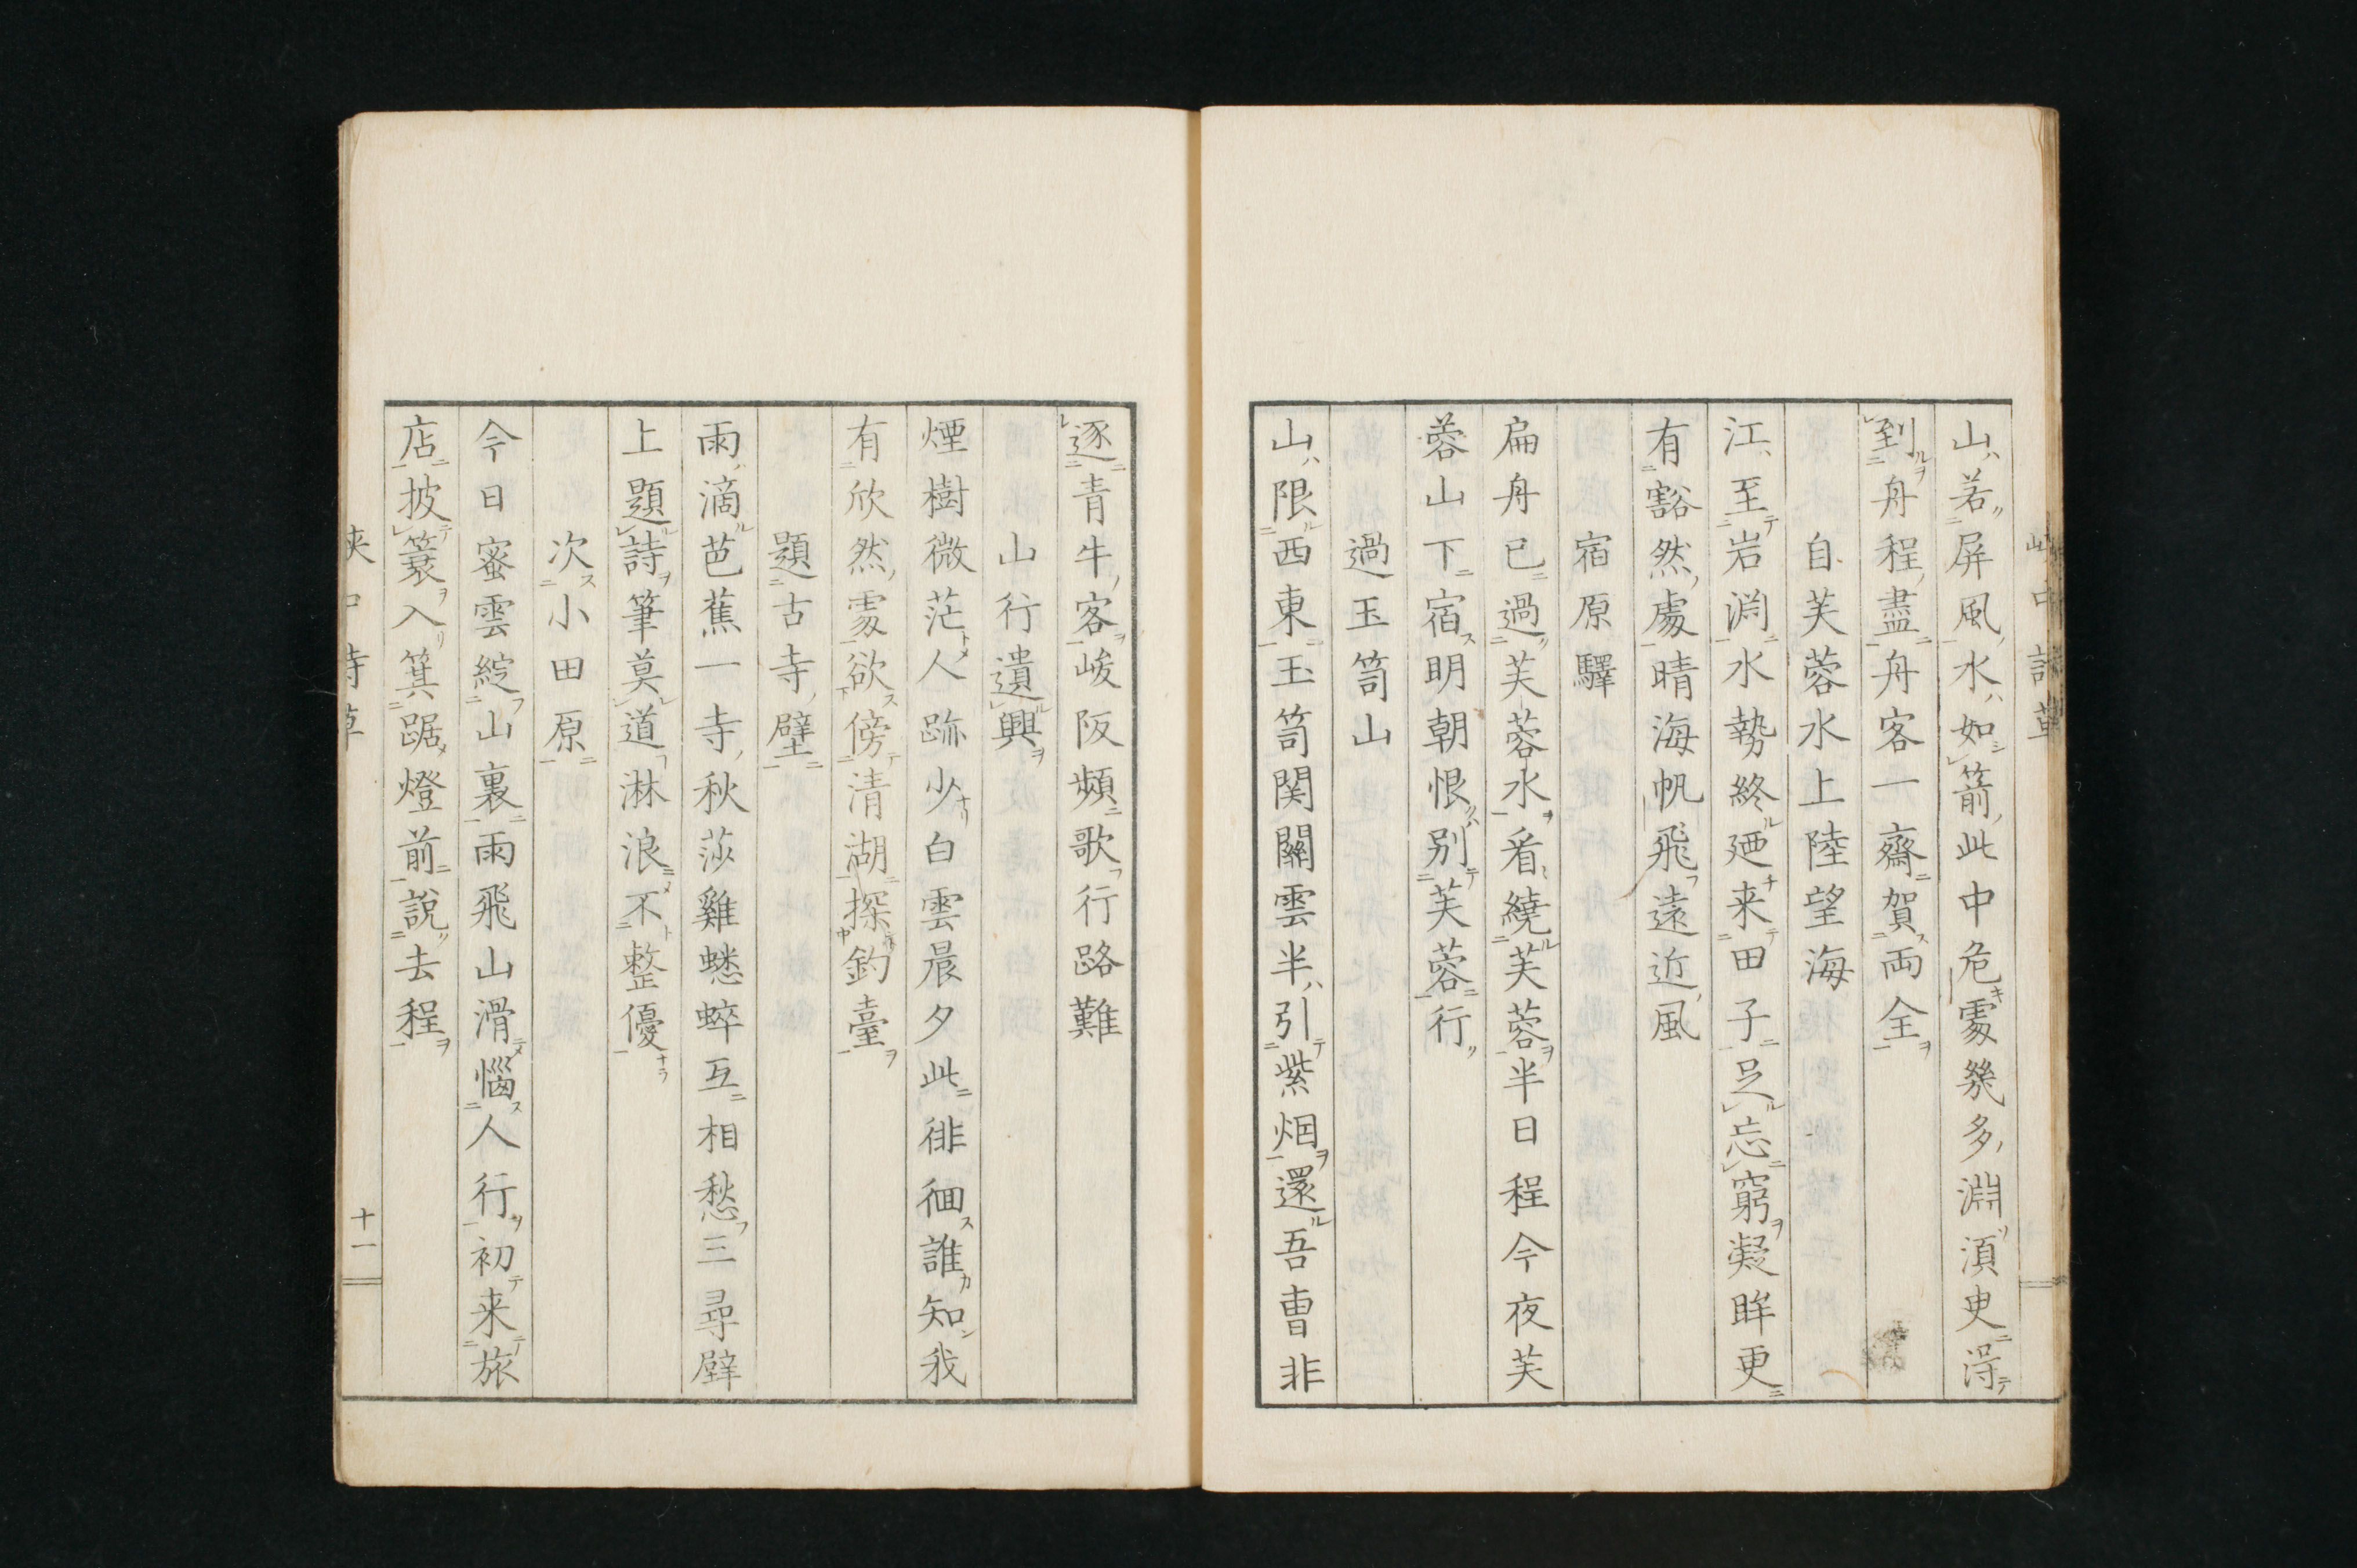 山若屏風水如箭此中危處幾多淵湏臾淂
到舟程盡舟客一齊賀両全
自芙蓉水上陸望海
江至岩渕水勢終廼来田子足忘窮凝眸更
有豁然處晴海帆飛遠近風
宿原驛
扁舟已過芙蓉水看繞芙蓉半日程今夜芙
蓉山下宿明朝恨別芙蓉行
過玉笥山
山限西東玉笥関關雲半引紫烟還吾曺非
逐青牛客峻阪頻歌行路難
山行遺興
煙樹微茫人跡少白雲晨夕此徘徊誰知我
有欣然處欲傍清湖探釣臺
題古寺壁
雨滴芭蕉一寺秋莎雞蟋蟀互相愁三尋壁
上題詩筆莫道淋浪不整優
次小田原
今日蜜雲綻山裏雨飛山滑惱人行初来旅
店披簑入箕踞燈前說去程
峽中詩草
十一